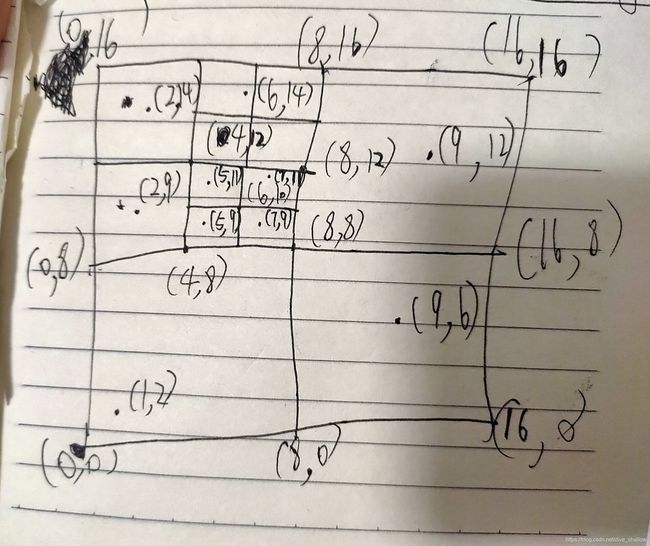 (0,16
(8,16)
(16,16)
(2,14)
(6,14)
(4,12)
(8,12)
(9,12)
(2,9)
(5,11)
(7,11)
(5,9)
(7,9)
(8,8)
(16,8)
(0,8)
(4,8)
(9,6)
(1,2)
(0,0)
(8,0)
(16,0